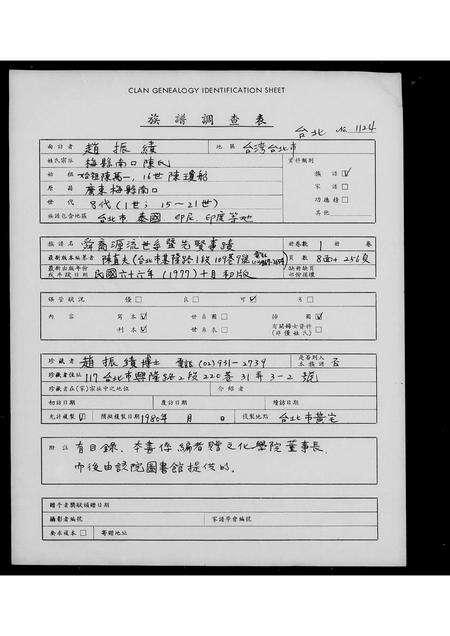 CLAN GENEALOGY IDENTIFICATION SHEET
族譜調查表
台北 No. 1124
面訪者 趙振績 地區 台灣台北市
姓氏宗分 梅縣南口陳氏 資料類別
始祖 始祖陳萬一, 16世陳瓊 族譜 ☑
原籍 廣東梅縣南口 家譜 □
世代 8代(1世; 15~21世) 功德榜 □
族譜包含地區 台北市 泰國 印尼 印度等地 其他
族譜名 舜裔源流世系暨先賢事蹟 冊卷數 1 冊 卷
最新版本編纂者 陳真夫(台北市基隆路1段109巷9號 頁數 8面+256頁
最新出版年份 民國六十六年(1977)十月初版 缺冊缺頁
保管狀況 優 □ 良 □ 可 ☑ 劣 □
內容 寫本 □ 世系圖 □ 插圖 ☑
刊本 ☑ 世系表 □ 有關婦女資料
珍藏者 趙振績博士 電話 (02)931-2739 是否列入本族譜 否
珍藏者住址 117 台北市興隆路2段220巷31弄3-2號
珍藏者在(家)宗族中之地位 介紹者
初訪日期 度訪日期 續訪日期
允許複製 ☑ 開始複製日期 1980年 月 日 複製地點 台北市黃宅
附註 有目錄. 本書係編者贈文化學院董事長,
而後由該院圖書館提供的.
贈予者獎狀頒贈日期
攝影者編號 家譜學會編號
要求複本 □ 寄贈地址